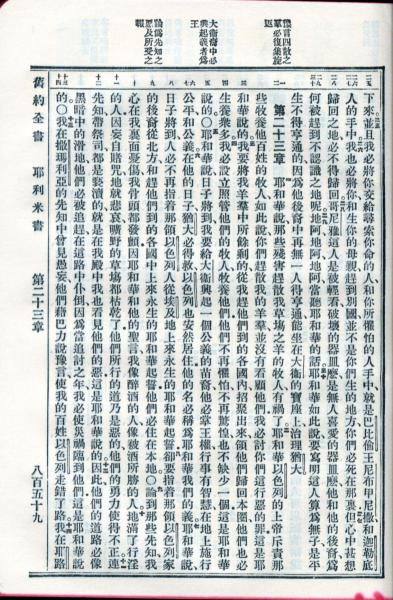 豫言四散之
羣必復集旋
返
大衞裔中必
興起義者為
王
論偽先知之
惡及所受之
報
下來並且我必將你交給尋索你命的人和你所懼怕的人手中就是巴比倫王尼布甲尼撒和迦勒底
人的手中我也必將你和生你的母親趕到別國並不是你們生的地方你們必死在那裏但心中甚想
歸回之地必不得歸回哥尼雅這人是被輕看破壞的器皿麼是無人喜愛的器皿麼他和他的後裔為
何被趕到不認識之地呢地阿地阿地阿當聽耶和華的話耶和華如此說要寫明這人算為無子是平
生不得亨通的因為他後裔中再無一人得亨通能坐在大衞的寶座上治理猶大
第二十三章 耶和華說那些殘害趕散我草場之羊的牧人有禍了耶和華以色列的上帝斥責那
些牧養他百姓的牧人如此說你們趕散我的羊羣並沒有看顧他們我必討你們這行惡的罪這是耶
和華說的我要將我羊羣中所餘剩的從我趕他們到的各國內招聚出來領他們歸回本圈他們也必
生養衆多我必設立照管他們的牧人牧養他們他們不再懼怕不再驚惶也不缺少一個這是耶和華
說的○耶和華說日子將到我要給大衞興起一個公義的苗裔他必掌王權行事有智慧在地上施行
公平和公義在他的日子猶大必得救以色列也安然居住他的名必稱為耶和華我們的義耶和華說
日子將到人必不再指着那領以色列人從埃及地上來永生的耶和華起誓卻要指着那領以色列家
的後裔從北方和趕他們到的各國中上來永生的耶和華起誓他們必住在本地○論到那些先知我
心在我裏面憂傷我骨頭都發顫因耶和華和他的聖言我像醉酒的人像被酒所勝的人地滿了行淫
的人因妄自賭咒地就悲哀曠野的草場都枯乾了他們所行的道乃是惡的他們的勇力使得不正連
先知帶祭司都是褻瀆的就是在我殿中我也看見他們的惡這是耶和華說的因此他們的道路必像
黑暗中的滑地他們必被追趕在這路中仆倒因為當追討之年我必使災禍臨到他們這是耶和華說
的○我在撒瑪利亞的先知中曾見愚妄他們藉巴力說豫言使我的百姓以色列走錯了路我在耶路
舊約全書 耶利米書 第二十三章 八百五十九